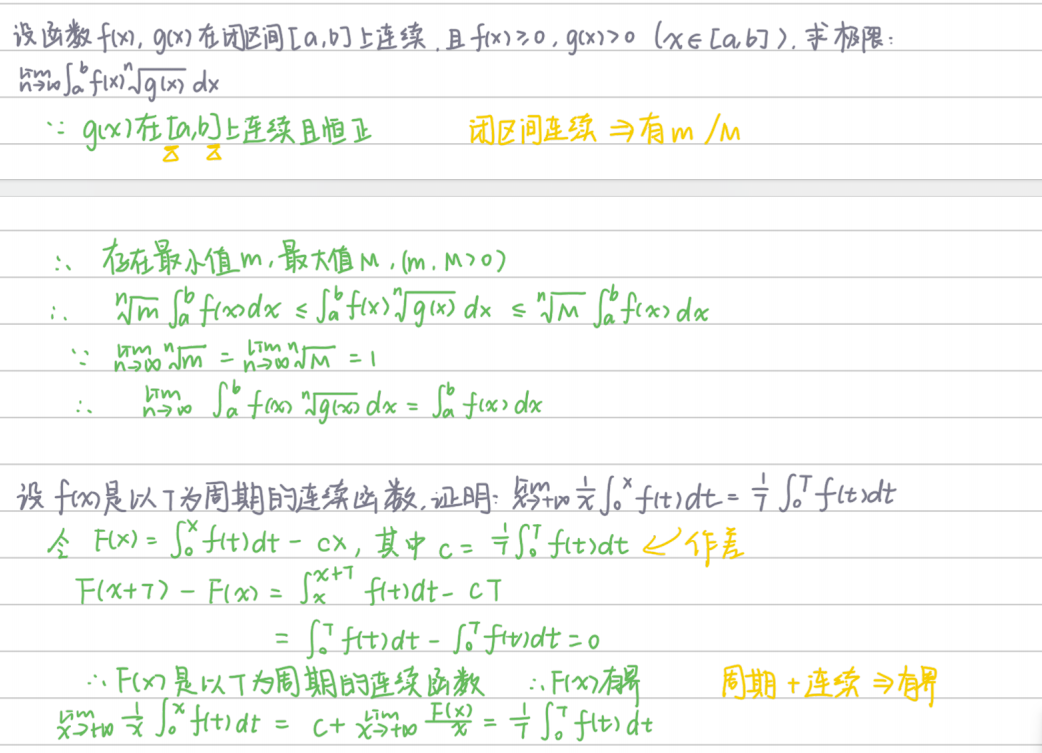 设函数f(x), g(x)在闭区间[a,b]上连续,且f(x)≥0, g(x)>0 (x∈[a,b]), 求极限:
lim n→∞ ∫_a^b f(x) ⁿ√g(x) dx
∵ g(x)在[a,b]上连续且恒正 闭区间连续⇒有m/M
∴ 存在最小值m,最大值M, (m, M>0)
∴ ⁿ√m ∫_a^b f(x)dx ≤ ∫_a^b f(x) ⁿ√g(x) dx ≤ ⁿ√M ∫_a^b f(x)dx
∵ lim n→∞ ⁿ√m = lim n→∞ ⁿ√M = 1
∴ lim n→∞ ∫_a^b f(x) ⁿ√g(x) dx = ∫_a^b f(x)dx
设f(x)是以T为周期的连续函数,证明: lim x→+∞ 1/x ∫_0^x f(t)dt = 1/T ∫_0^T f(t)dt
令 F(x) = ∫_0^x f(t)dt - cx, 其中 c = 1/T ∫_0^T f(t)dt ↙作差
F(x+T) - F(x) = ∫_x^{x+T} f(t)dt - cT
= ∫_0^T f(t)dt - ∫_0^T f(t)dt = 0
∴ F(x)是以T为周期的连续函数 ∴F(x)有界 周期+连续⇒有界
lim x→+∞ 1/x ∫_0^x f(t)dt = c + lim x→+∞ F(x)/x = 1/T ∫_0^T f(t)dt